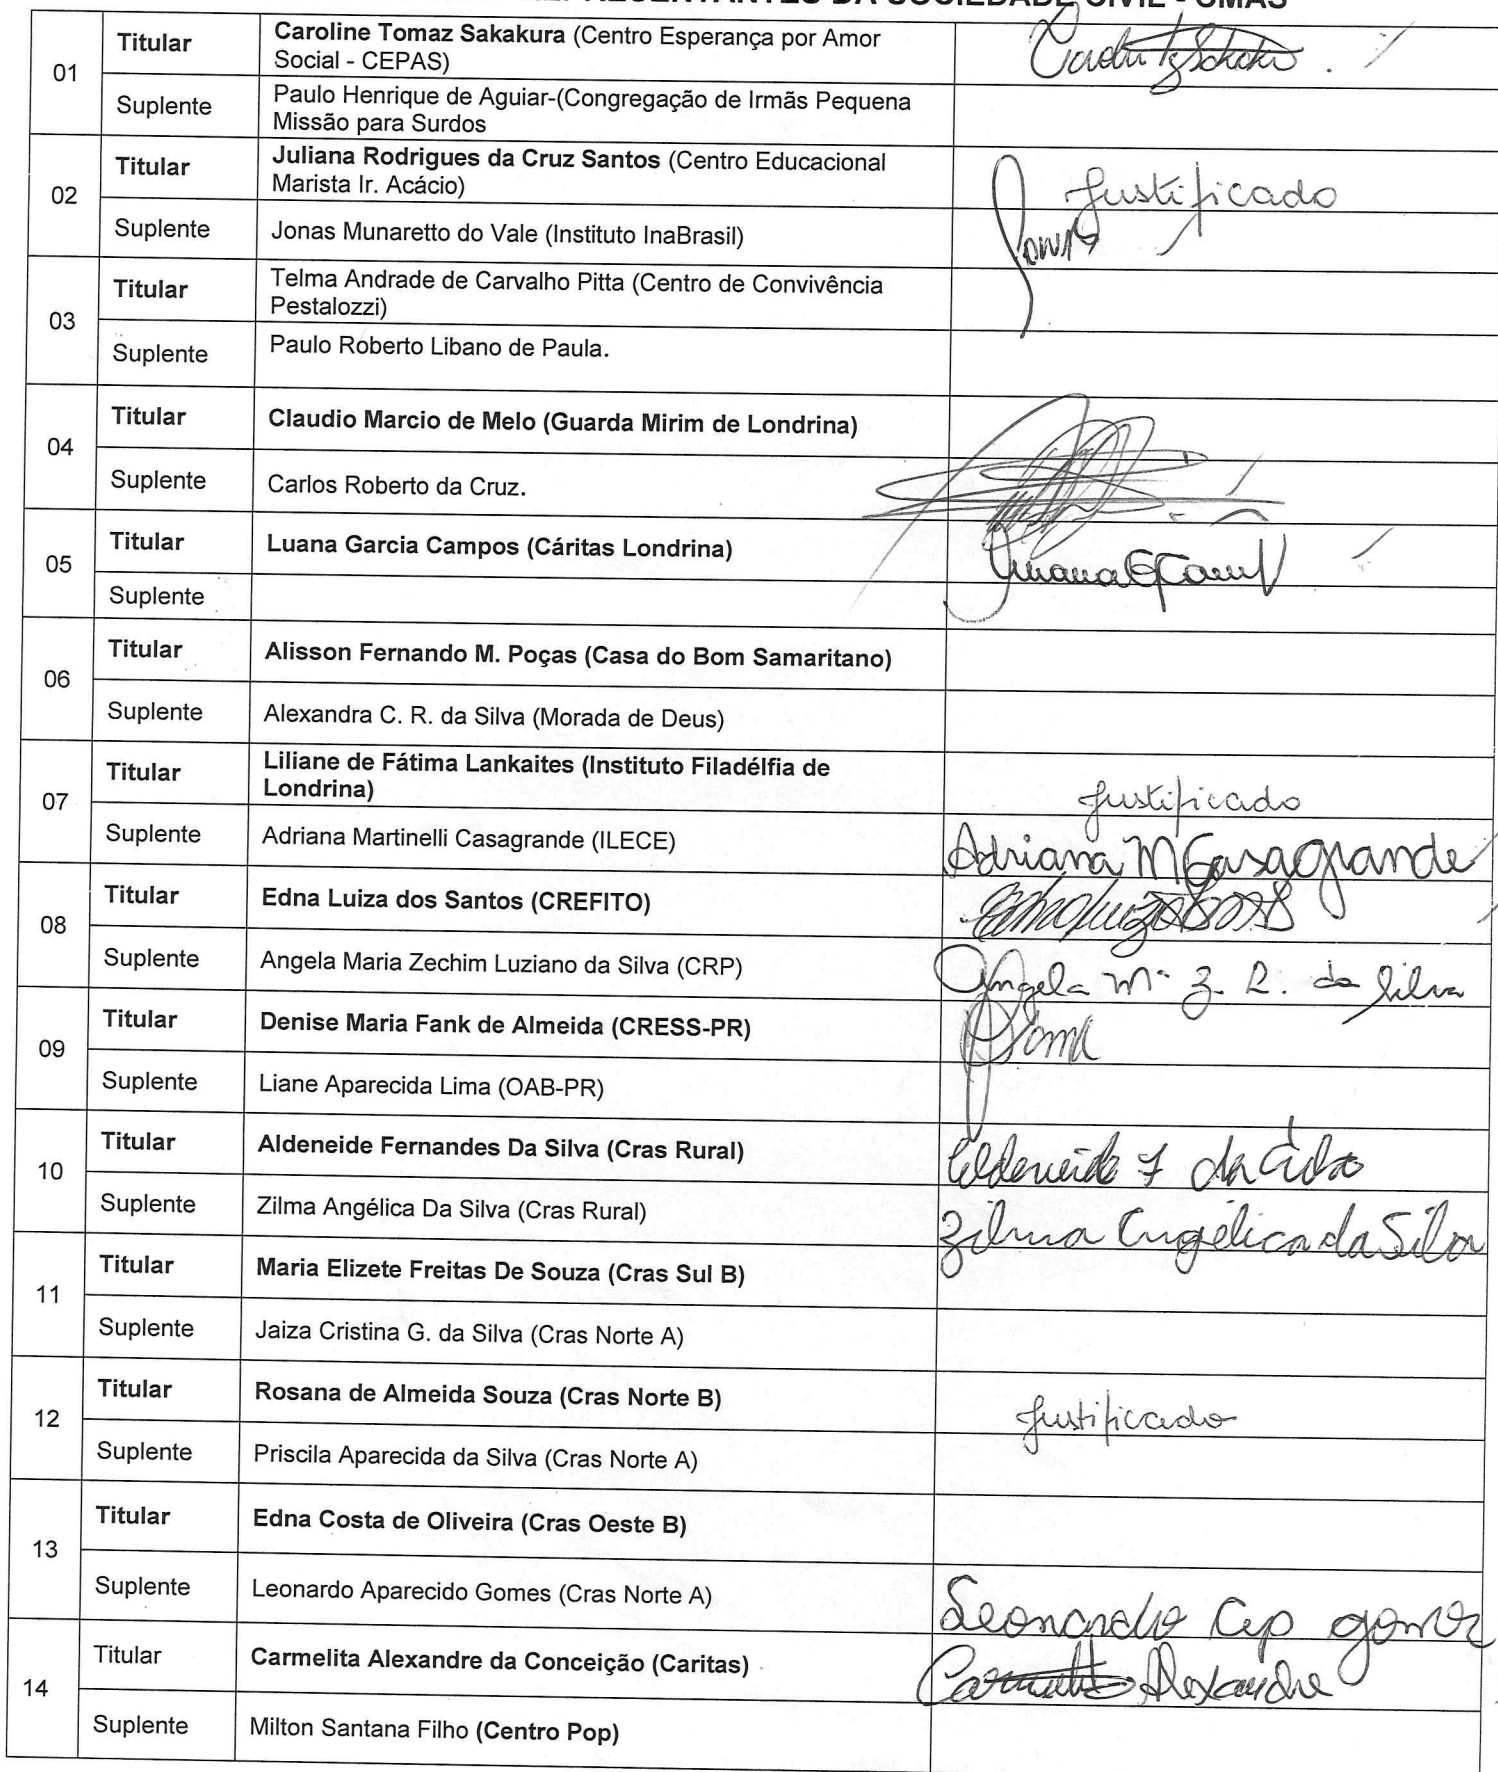 REPRESENTANTES DA SOCIEDADE CIVIL - CMAS
01
Titular
Caroline Tomaz Sakakura (Centro Esperança por Amor
Social - CEPAS)
Suplente
Paulo Henrique de Aguiar-(Congregação de Irmãs Pequena
Missão para Surdos
02
Titular
Juliana Rodrigues da Cruz Santos (Centro Educacional
Marista Ir. Acácio)
Justificado
Suplente
Jonas Munaretto do Vale (Instituto InaBrasil)
03
Titular
Telma Andrade de Carvalho Pitta (Centro de Convivência
Pestalozzi)
Suplente
Paulo Roberto Libano de Paula.
04
Titular
Claudio Marcio de Melo (Guarda Mirim de Londrina)
Suplente
Carlos Roberto da Cruz.
05
Titular
Luana Garcia Campos (Cáritas Londrina)
Suplente
06
Titular
Alisson Fernando M. Poças (Casa do Bom Samaritano)
Suplente
Alexandra C. R. da Silva (Morada de Deus)
07
Titular
Liliane de Fátima Lankaites (Instituto Filadélfia de
Londrina)
Justificado
Suplente
Adriana Martinelli Casagrande (ILECE)
Adriana M Casagrande
08
Titular
Edna Luiza dos Santos (CREFITO)
Suplente
Angela Maria Zechim Luziano da Silva (CRP)
Angela Mª Z. L. da Silva
09
Titular
Denise Maria Fank de Almeida (CRESS-PR)
Suplente
Liane Aparecida Lima (OAB-PR)
10
Titular
Aldeneide Fernandes Da Silva (Cras Rural)
Aldeneide F da Silva
Suplente
Zilma Angélica Da Silva (Cras Rural)
Zilma Angélica da Silva
11
Titular
Maria Elizete Freitas De Souza (Cras Sul B)
Suplente
Jaiza Cristina G. da Silva (Cras Norte A)
12
Titular
Rosana de Almeida Souza (Cras Norte B)
Justificado
Suplente
Priscila Aparecida da Silva (Cras Norte A)
13
Titular
Edna Costa de Oliveira (Cras Oeste B)
Suplente
Leonardo Aparecido Gomes (Cras Norte A)
Leonardo Ap gomes
14
Titular
Carmelita Alexandre da Conceição (Caritas)
Carmelita Alexandre
Suplente
Milton Santana Filho (Centro Pop)